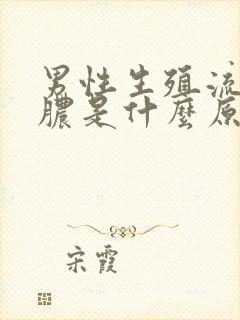 男性生殖流
膿是什麼原
宋霞